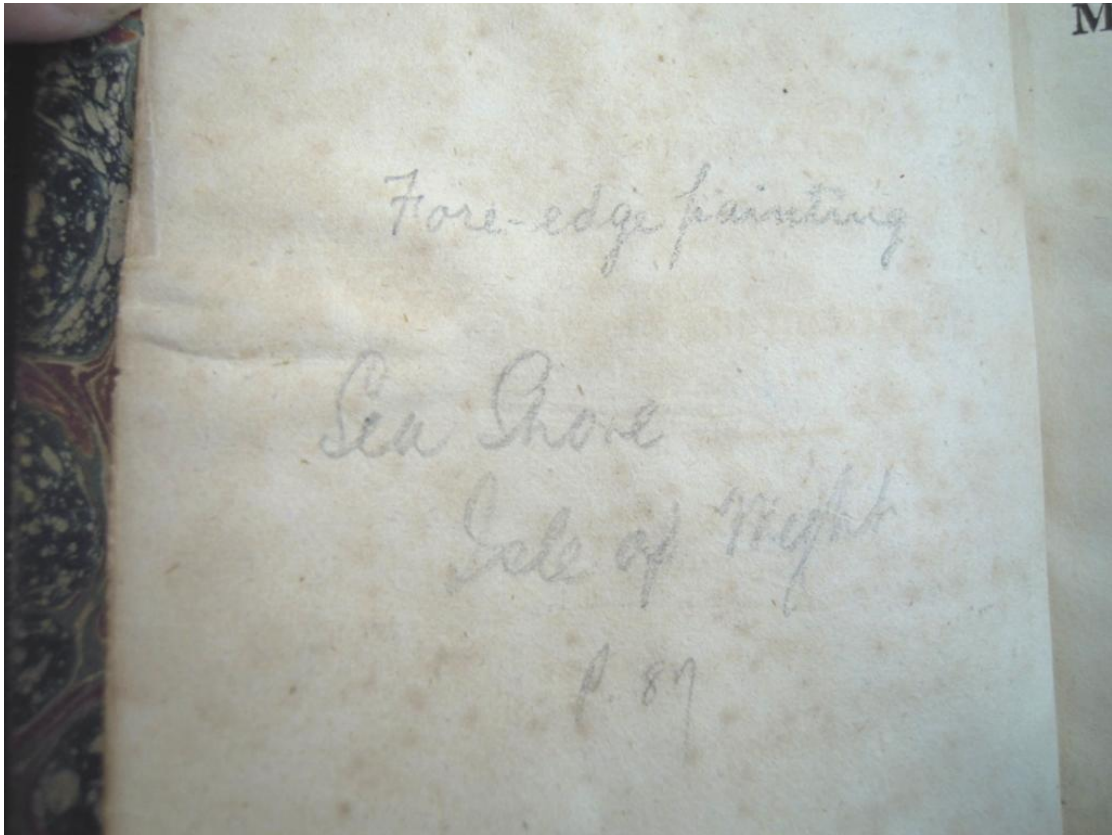 M
Fore-edge painting
Sea Shore
Isle of Wight
p. 87